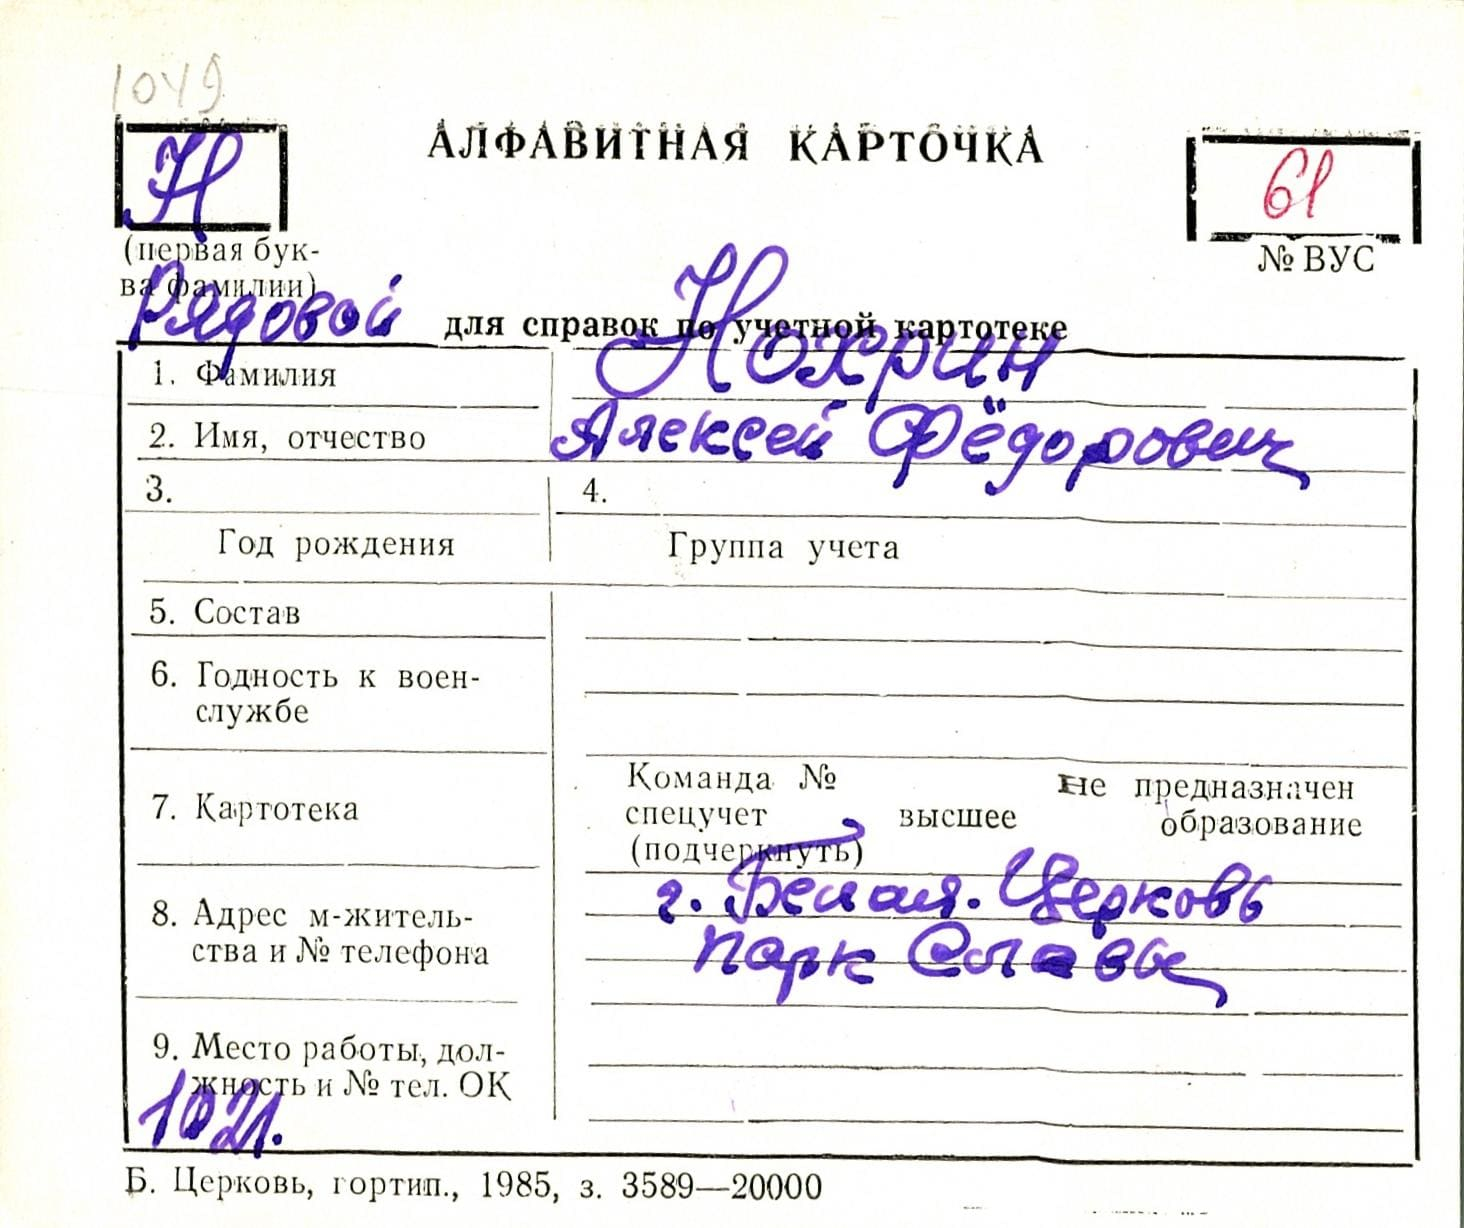 1049
Н
АЛФАВИТНАЯ КАРТОЧКА
61
(первая бук-
ва фамилии)
№ ВУС
Рядовой
для справок по учетной картотеке
1. Фамилия
Нохрин
2. Имя, отчество
Алексей Фёдорович
3.
4.
Год рождения
Группа учета
5. Состав
6. Годность к воен-
службе
7. Картотека
Команда № не предназначен
спецучет высшее образование
(подчеркнуть)
8. Адрес м-житель-
ства и № телефона
г. Белая. Церковь
парк Славы
9. Место работы, дол-
жность и № тел. ОК
1021.
Б. Церковь, гортип., 1985, з. 3589—20000